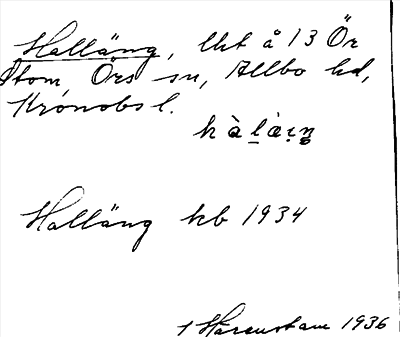 Halläng, lht å 13 Ör
Stom, Örs sn, Allbo hd,
Kronobs l.
hàl̠àɩṇ
Halläng kb 1934
1 Harenstam 1936